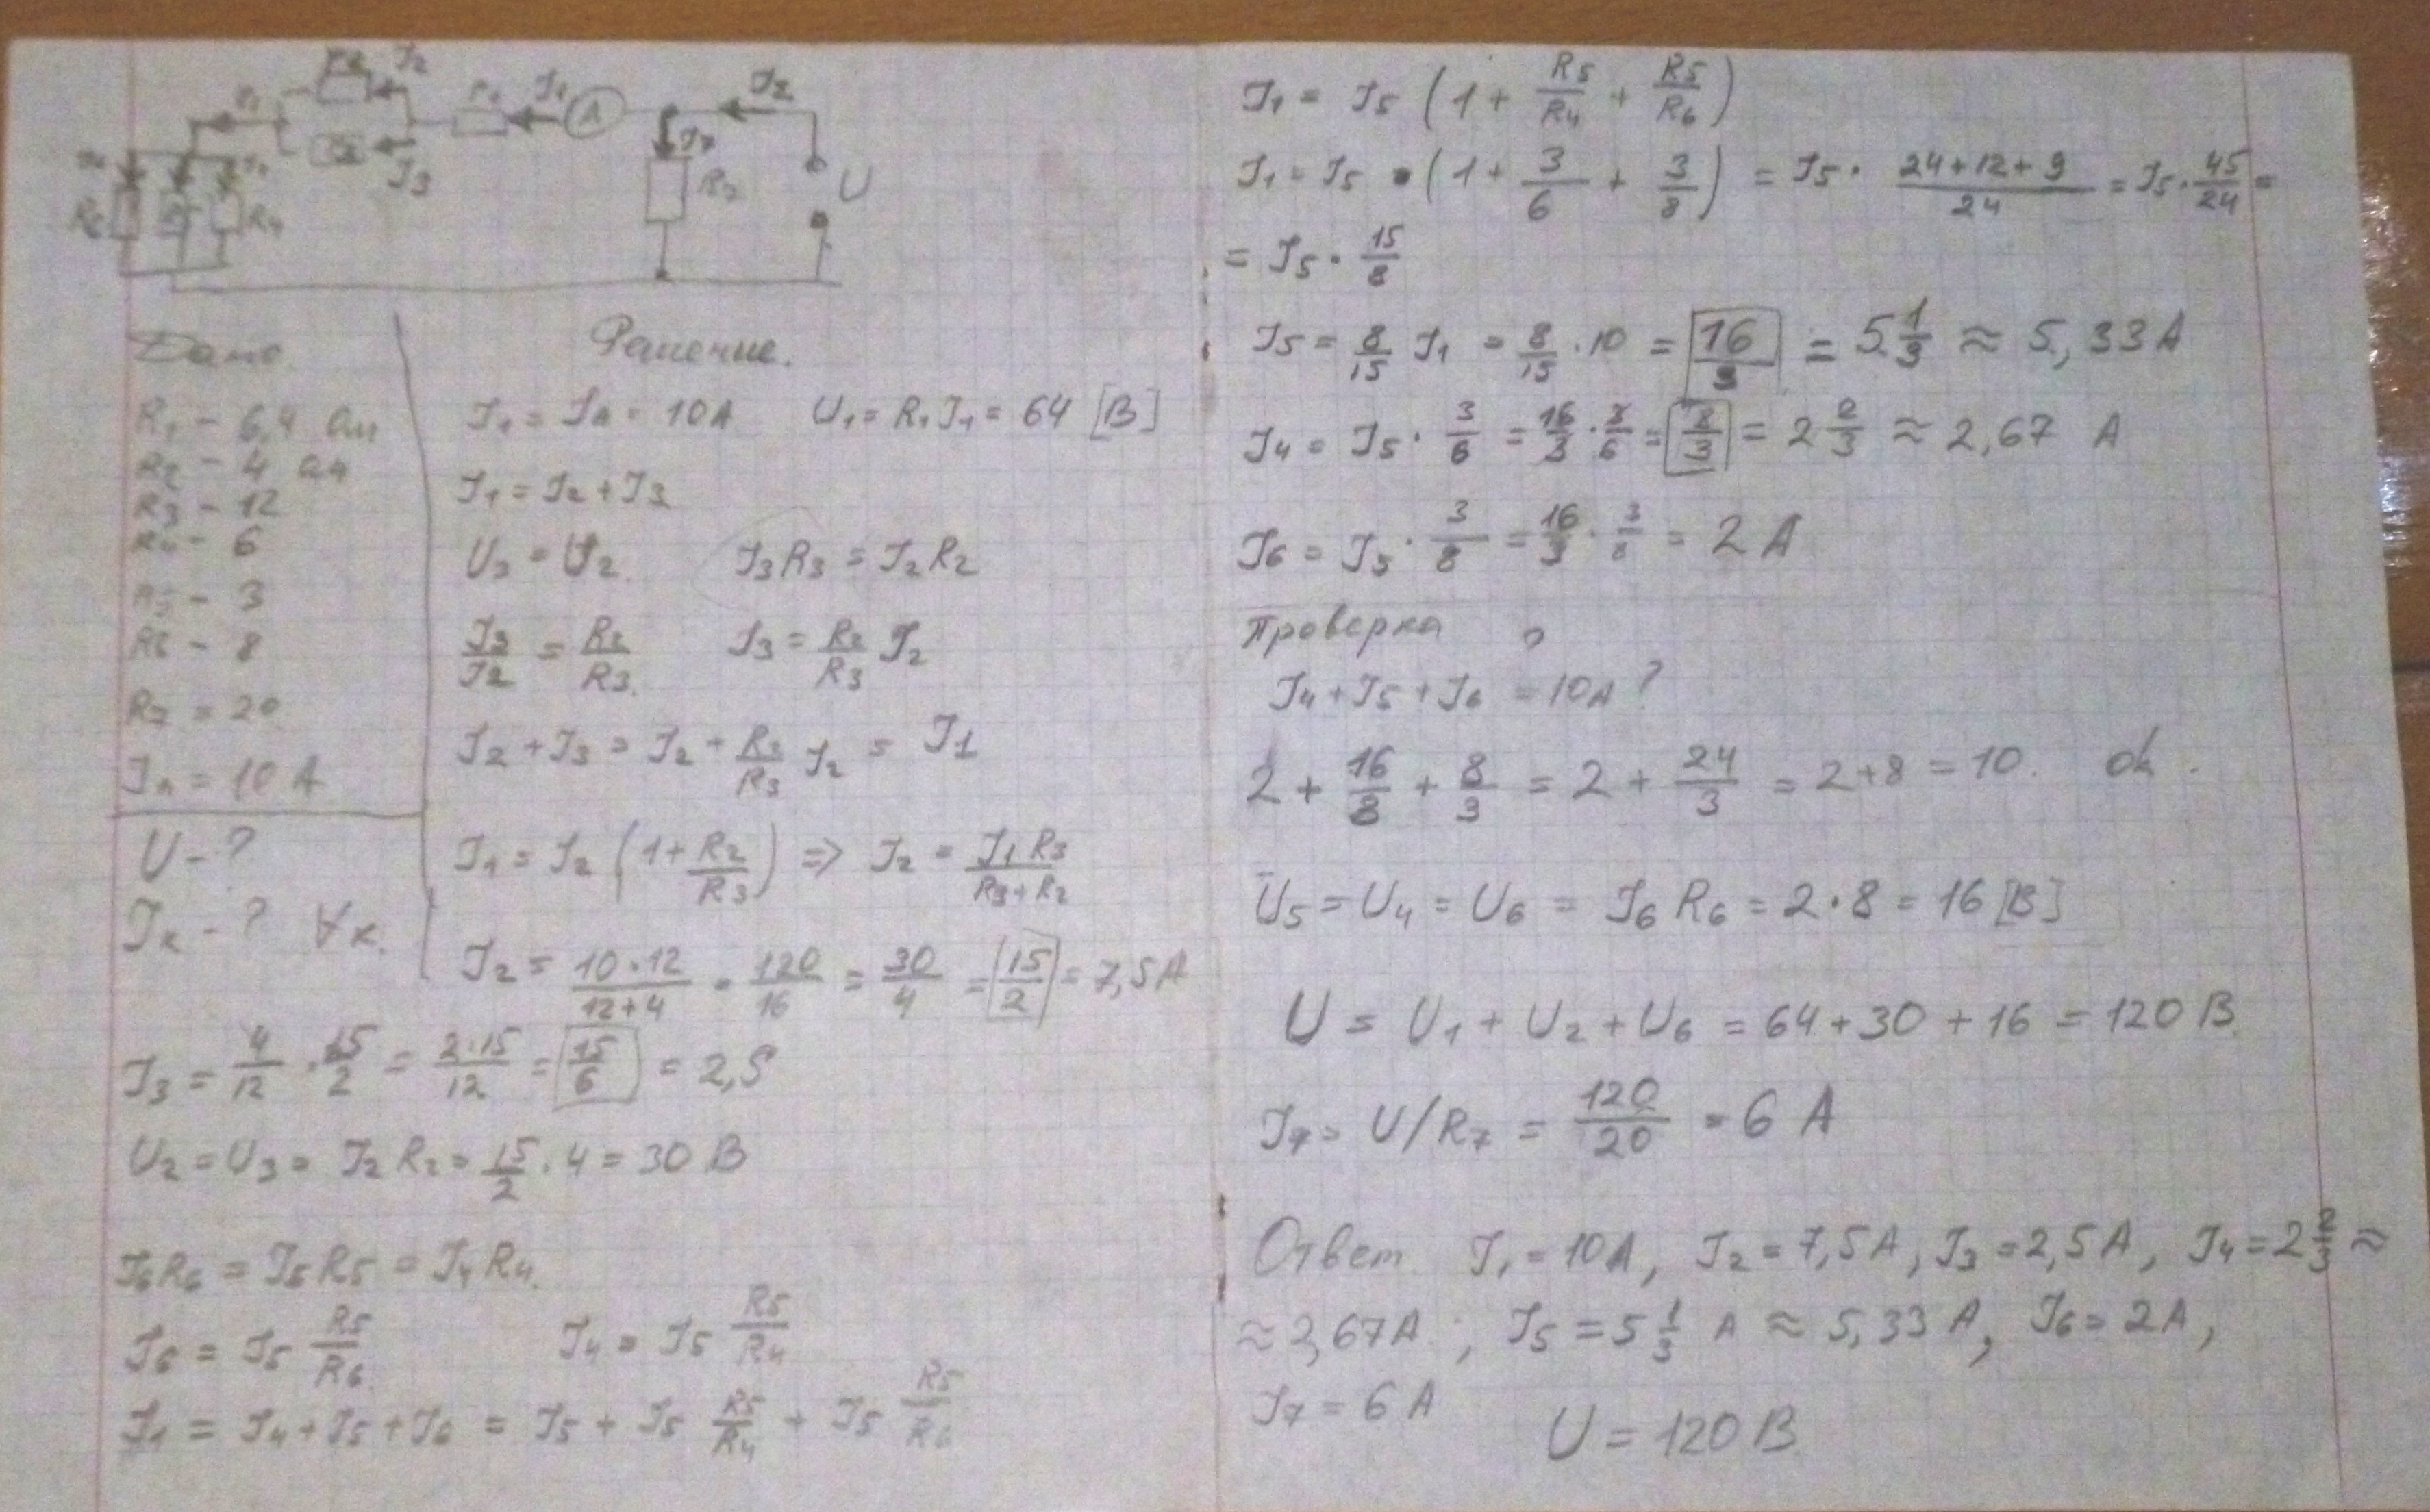 R2 J2
J1 R1 J1 A J2
J3 J7
R7 U
R6 R5 R4
Дано
Решение.
R1 - 6,4 Ом
R2 - 4 Ом
R3 - 12
R4 - 6
R5 - 3
R6 - 8
R7 = 20
JA = 10 A
U - ?
Jк - ? ∀к.
J1 = JA = 10A U1 = R1 J1 = 64 [B]
J1 = J2 + J3
U3 = U2. J3R3 = J2R2
J3/J2 = R2/R3. J3 = R2/R3 J2
J2 + J3 = J2 + R2/R3 J2 = J1
J1 = J2 (1 + R2/R3) => J2 = J1 R3/(R3+R2)
J2 = 10·12/(12+4) = 120/16 = 30/4 = 15/2 = 7,5A
J3 = 4/12 · 15/2 = 2·15/12 = 15/6 = 2,5
U2 = U3 = J2 R2 = 15/2 · 4 = 30 B
J6R6 = J5R5 = J4R4.
J6 = J5 R5/R6 J4 = J5 R5/R4
J1 = J4 + J5 + J6 = J5 + J5 R5/R4 + J5 R5/R6
J1 = J5 (1 + R5/R4 + R5/R6)
J1 = J5 · (1 + 3/6 + 3/8) = J5 · (24+12+9)/24 = J5 · 45/24 =
= J5 · 15/8
J5 = 8/15 J1 = 8/15 · 10 = 16/3 = 5 1/3 ≈ 5,33 A
J4 = J5 · 3/6 = 16/3 · 3/6 = 8/3 = 2 2/3 ≈ 2,67 A
J6 = J5 · 3/8 = 16/3 · 3/8 = 2 A
Проверка
J4 + J5 + J6 = 10A ?
2 + 16/3 + 8/3 = 2 + 24/3 = 2 + 8 = 10. ok.
U5 = U4 = U6 = J6 R6 = 2·8 = 16 [B]
U = U1 + U2 + U6 = 64 + 30 + 16 = 120 B.
J7 = U/R7 = 120/20 = 6 A
Ответ J1 = 10A, J2 = 7,5A, J3 = 2,5A, J4 = 2 2/3 ≈
≈ 2,67A ; J5 = 5 1/3 A ≈ 5,33 A, J6 = 2A,
J7 = 6 A U = 120 B